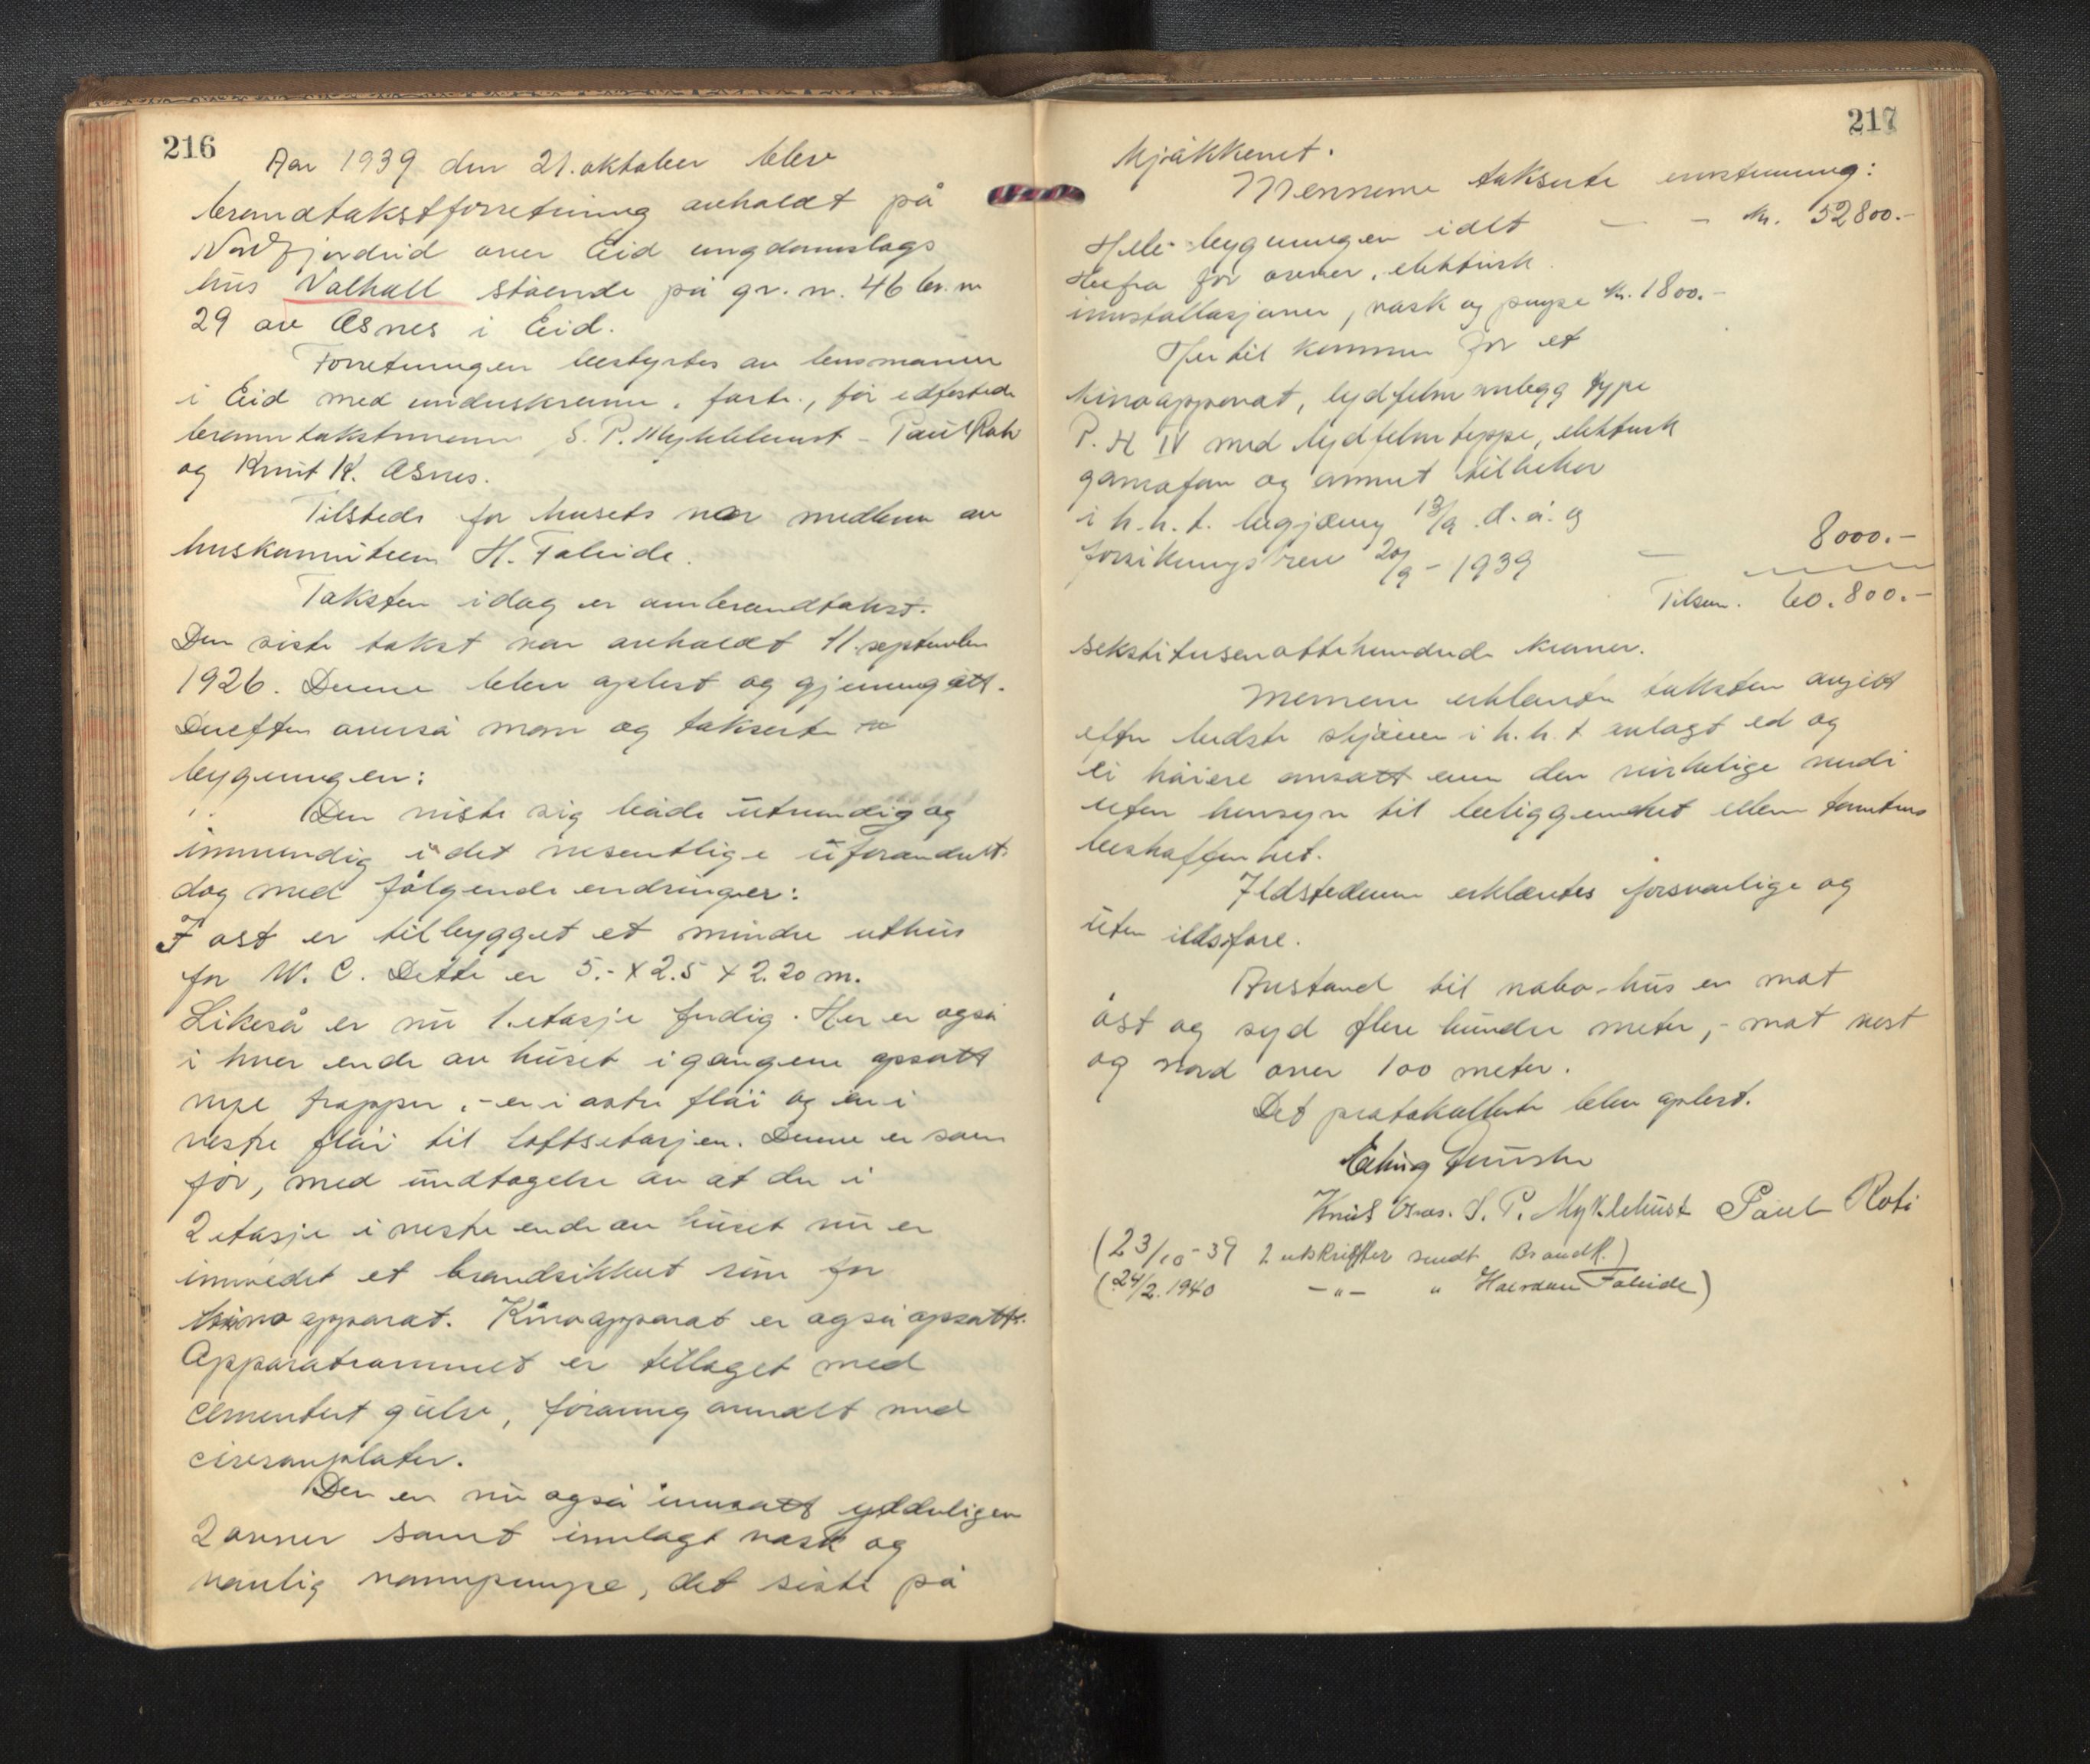 216
Aar 1939 den 21. oktober blev
brandtakstforretning avholdt på
Nordfjordeid over Eid ungdomslags
hus Valhall stående på gr. n. 46 br. n
29 av Æsnes i Eid.
Forretningen bestyrtes av lensmannen
i Eid med underskrevne, forts., før edfestede
branntakstmenn S. P. Myklebust - Paul Roti
og Knut K. Æsnes.
Tilstede for husets var medlem av
huskomiteen H. Faleide.
Taksten idag er ombrandtakst.
Den siste takst var avholdt 11. september
1926. Denne blev oplest og gjennemgått.
Derefter overså man og takserte
bygningen:
Den viste sig både utvendig og
innvendig i det vesentlige uforandret.
dog med følgende endringer:
I øst er tilbygget et mindre uthus
for W. C. Dette er 5.- x 2.5 x 2.20 m.
Likeså er nu 1. etasje ferdig. Her er også
i hver ende av huset i gangene opsatt
nye trapper, - en i østre fløi og en i
vestre fløi til loftsetasjen. Denne er som
før, med undtagelse av at der i
2 etasje i vestre ende av huset nu er
innredet et brandsikkert rum for
kino apparat. Kinoapparat er også opsatt.
Apparatrommet er tillaget med
cementert gulv, foring omvalt med
plater.
Der er nu også innsatt ytterligere
2 ovner samt innlagt vask og
vanlig vannpumpe, det siste på
217
kjøkkenet.
Mennene takserte enstemmig:
Hele bygningen idet - - kr. 52800.-
Herfra for ovner, elektrisk
innstallasjoner, vask og pumpe kr. 1800.-
Hertil kommer for et
kinoapparat, lydfilm anlegg type
P. H IV med lydfilm teppe, elektrisk
gramofon og annet tilbehør
i h. h. t. begjæring 13/9 d. å. og
forsikrings brev 20/9 - 1939 - 8000.-
Tilsam. 60.800.-
sekstitusenottehundrede kroner.
Mennene erklærte taksten avgitt
efter bedste skjønn i h. h. t avlagt ed og
ei høiere ansatt enn den virkelige verdi
uten hensyn til beliggenhet eller tomtens
beskaffenhet.
Ildstedenne erklærtes forsvarlige og
uten ildsfare.
Avstand til nabo-hus er mot
øst og syd flere hundre meter, - mot vest
og nord over 100 meter.
Det protokollerte blev oplest.
Knut Æsnes. S. P. Myklebust Paul Roti
(23/10 - 39 2 utskrifter sendt Brandk.)
(24/2. 1940 -"- " Halvdan Faleide)